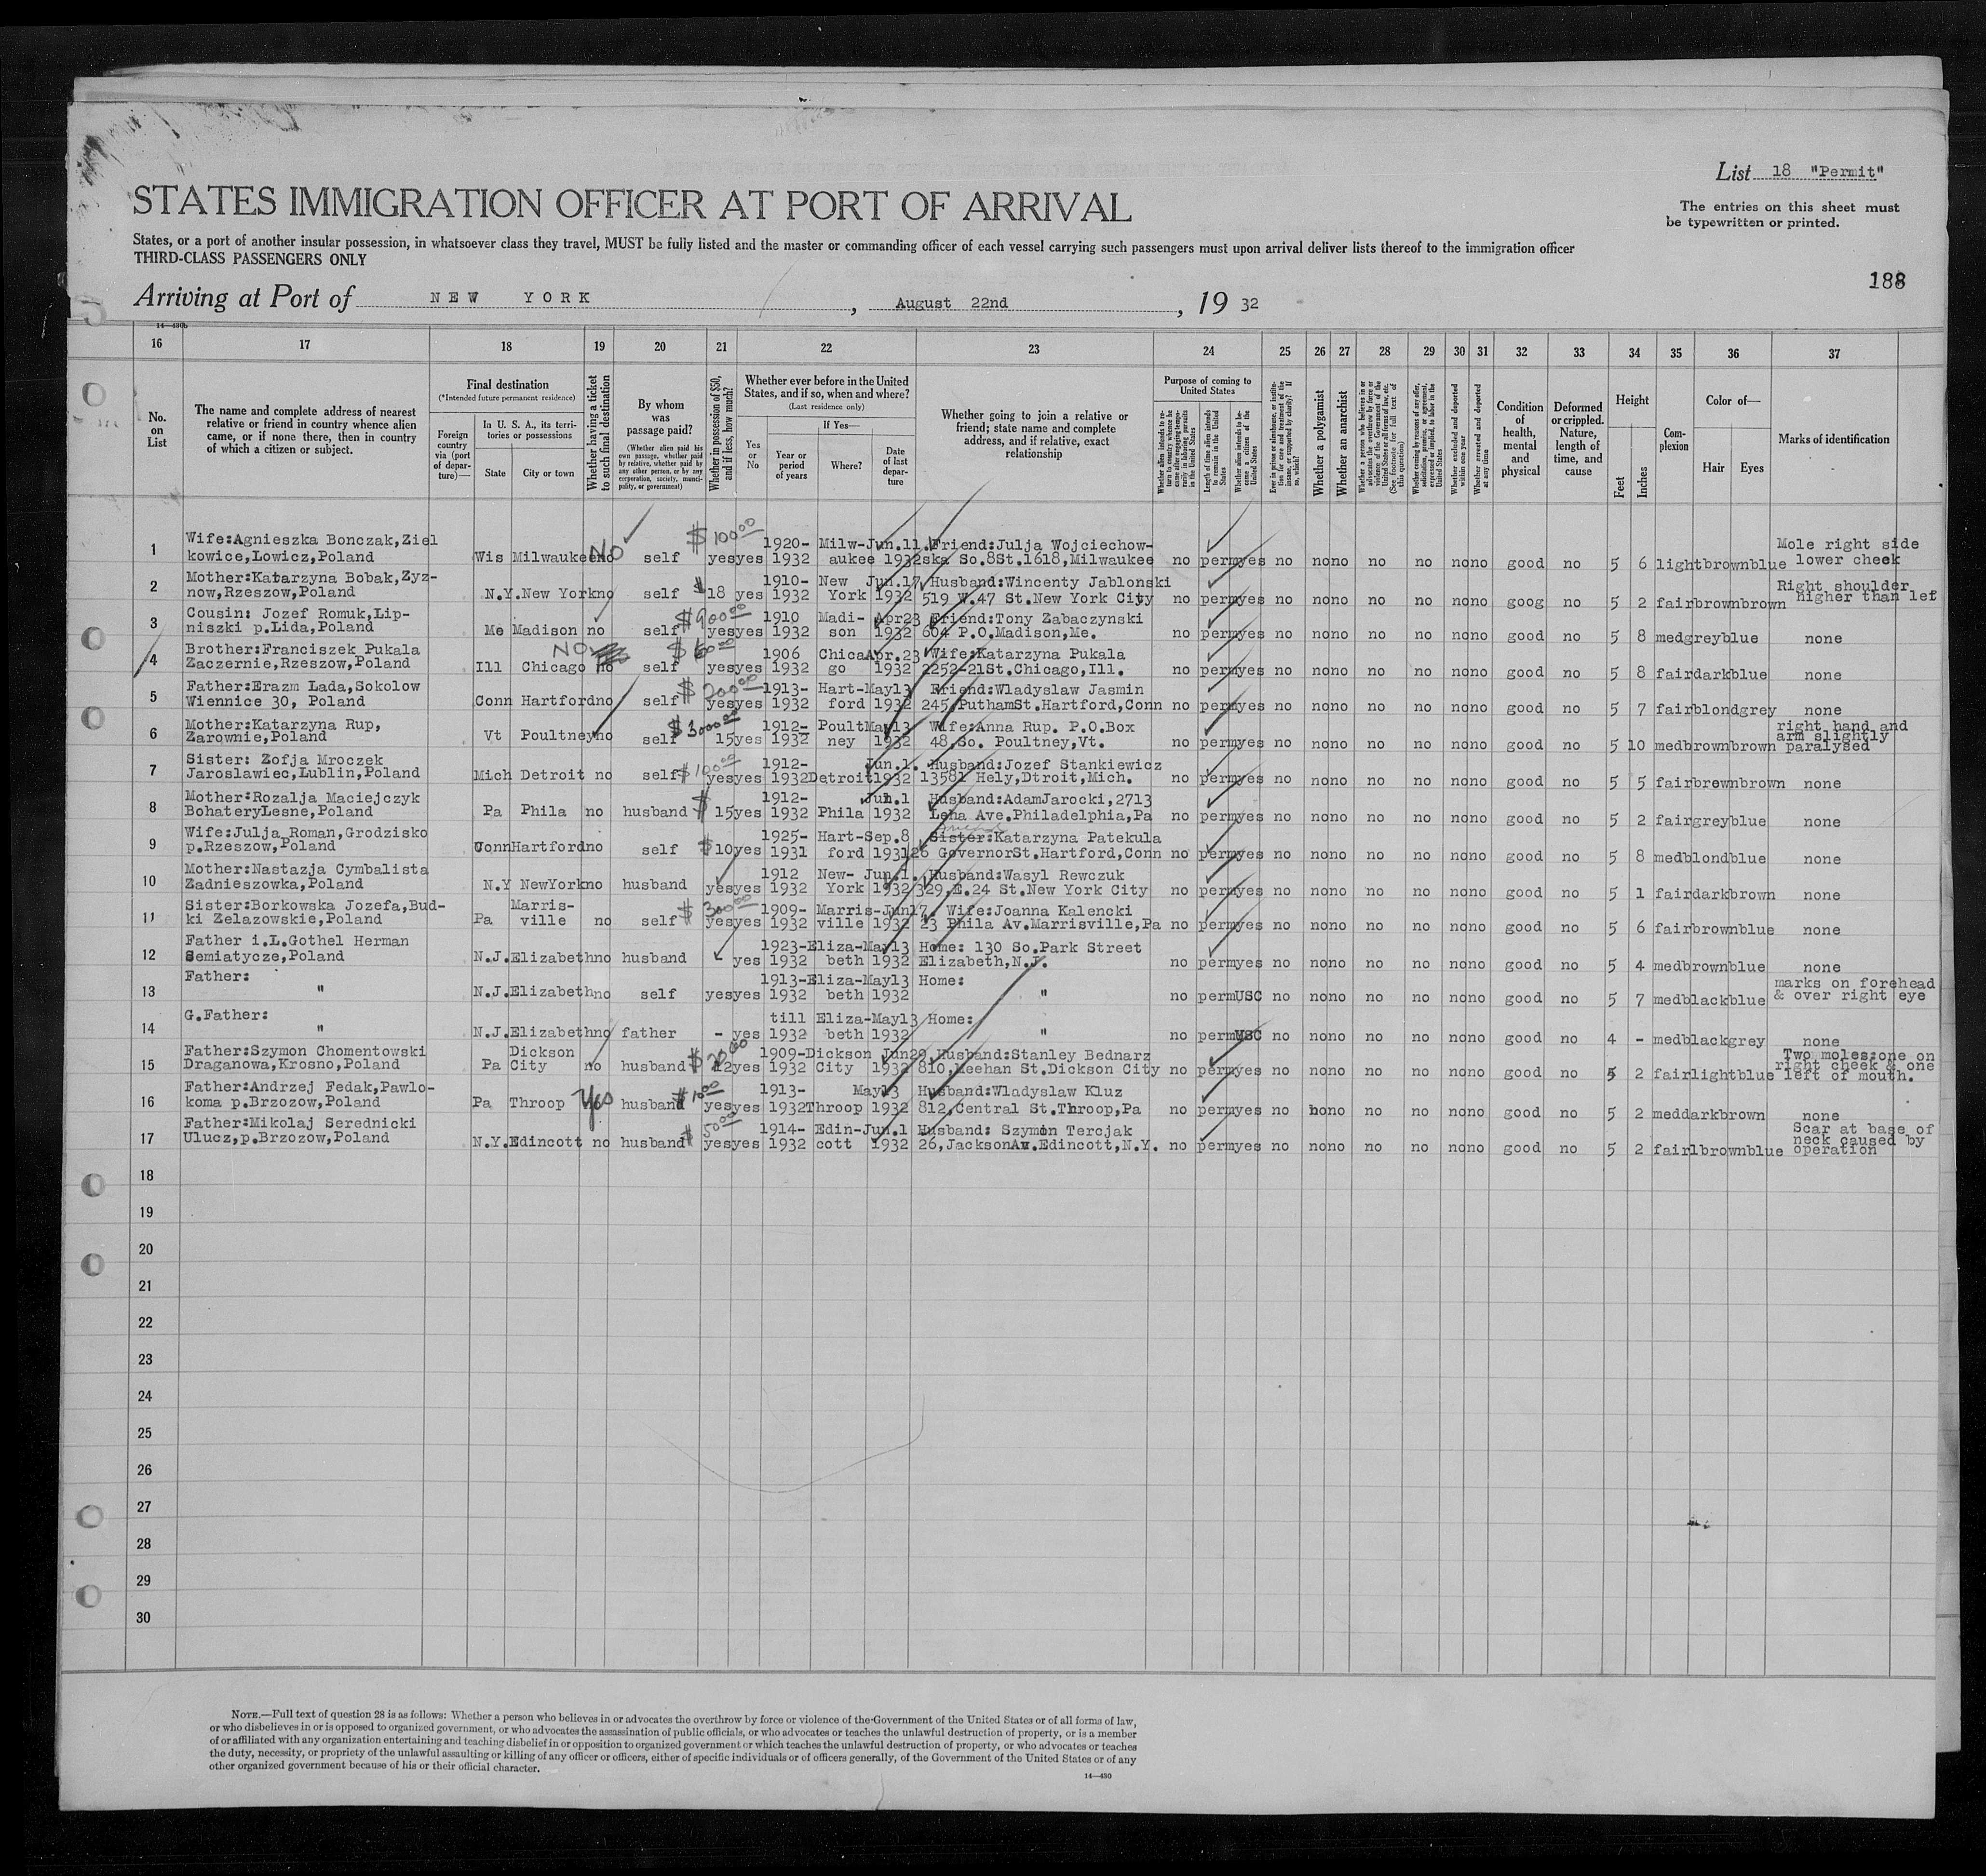 List 18 "Permit"
STATES IMMIGRATION OFFICER AT PORT OF ARRIVAL
The entries on this sheet must
be typewritten or printed.
States, or a port of another insular possession, in whatsoever class they travel, MUST be fully listed and the master or commanding officer of each vessel carrying such passengers must upon arrival deliver lists thereof to the immigration officer
THIRD-CLASS PASSENGERS ONLY
188
Arriving at Port of NEW YORK, August 22nd, 19 32
14—430b
16 17 18 19 20 21 22 23 24 25 26 27 28 29 30 31 32 33 34 35 36 37
No. on List
The name and complete address of nearest relative or friend in country whence alien came, or if none there, then in country of which a citizen or subject.
Final destination
(*Intended future permanent residence)
Foreign country via (port of departure)—
In U. S. A., its territories or possessions
State City or town
Whether having a ticket to such final destination
By whom was passage paid?
(Whether alien paid his own passage, whether paid by relative, whether paid by any other person, or by any corporation, society, municipality, or government)
Whether in possession of $50, and if less, how much?
Whether ever before in the United States, and if so, when and where?
(Last residence only)
Yes or No
If Yes—
Year or period of years
Where?
Date of last departure
Whether going to join a relative or friend; state name and complete address, and if relative, exact relationship
Purpose of coming to United States
Whether alien intends to return to country whence he came after engaging temporarily in laboring pursuits in the United States
Length of time alien intends to remain in the United States
Whether alien intends to become a citizen of the United States
Ever in prison or almshouse, or institution for care and treatment of the insane, or supported by charity? If so, which?
Whether a polygamist
Whether an anarchist
Whether a person who believes in or advocates the overthrow by force or violence of the Government of the United States or all forms of law, etc. (See footnote for full text of this question)
Whether coming by reason of any offer, solicitation, promise, or agreement, expressed or implied, to labor in the United States
Whether excluded and deported within one year
Whether arrested and deported at any time
Condition of health, mental and physical
Deformed or crippled. Nature, length of time, and cause
Height
Feet Inches
Complexion
Color of—
Hair Eyes
Marks of identification
1 Wife:Agnieszka Bonczak,Ziel $100 00 1920- Milw-Jun.11. Friend:Julja Wojciechow- Mole right side
kowice,Lowicz,Poland Wis Milwaukee No no self yes yes 1932 aukee 1932 ska So.8St.1618,Milwaukee no perm yes no no no no no no no good no 5 6 light brown blue lower cheek
2 Mother:Katarzyna Bobak,Zyz- 1910- New Jun.17 Husband:Wincenty Jablonski Right shoulder
now,Rzeszow,Poland N.Y. New York no self $18 yes 1932 York 1932 519 W.47 St.New York City no perm yes no no no no no no no goog no 5 2 fair brown brown higher than lef
3 Cousin: Jozef Romuk,Lip- $900 00 1910 Madi- Apr23 Friend:Tony Zabaczynski
niszki p.Lida,Poland Me Madison no self yes yes 1932 son 1932 604 P.O.Madison,Me. no perm yes no no no no no no no good no 5 8 med grey blue none
4 Brother:Franciszek Pukala NO 1906 Chica Apr.23 Wife:Katarzyna Pukala
Zaczernie,Rzeszow,Poland Ill Chicago no self yes yes 1932 go 1932 2252-21St.Chicago,Ill. no perm yes no no no no no no no good no 5 8 fair dark blue none
5 Father:Erazm Lada,Sokolow $200 00 1913- Hart-May13 Friend:Wladyslaw Jasmin
Wiennice 30, Poland Conn Hartford no self yes yes 1932 ford 1932 245,PuthamSt.Hartford,Conn no perm yes no no no no no no no good no 5 7 fair blond grey none
6 Mother:Katarzyna Rup, 1912- Poult May13 Wife:Anna Rup. P.O.Box right hand and
Zarownie,Poland Vt Poultney no self 15 yes 1932 ney 1932 48,So. Poultney,Vt. no perm yes no no no no no no no good no 5 10 med brown brown arm slightly paralysed
7 Sister: Zofja Mroczek $100 00 1912- Jun.1. Husband:Jozef Stankiewicz
Jaroslawiec,Lublin,Poland Mich Detroit no self yes yes 1932 Detroit 1932 13581 Hely,Dtroit,Mich. no perm yes no no no no no no no good no 5 5 fair brewn brown none
8 Mother:Rozalja Maciejczyk $ 1912- Jun.1 Husband:AdamJarocki,2713
BohateryLesne,Poland Pa Phila no husband 15 yes 1932 Phila 1932 Leha Ave.Philadelphia,Pa no perm yes no no no no no no no good no 5 2 fair grey blue none
9 Wife:Julja Roman,Grodzisko 1925- Hart-Sep.8 Sister:Katarzyna Patekula
p.Rzeszow,Poland Conn Hartford no self $10 yes 1931 ford 1931 26 GovernorSt.Hartford,Conn no perm yes no no no no no no no good no 5 8 med blond blue none
10 Mother:Nastazja Cymbalista 1912 New- Jun.1. Husband:Wasyl Rewczuk
Zadnieszowka,Poland N.Y NewYork no husband yes yes 1932 York 1932 329,E.24 St.New York City no perm yes no no no no no no no good no 5 1 fair dark brown none
11 Sister:Borkowska Jozefa,Bud- Marris- $300 00 1909- Marris-Jun17. Wife:Joanna Kalencki
ki Zelazowskie,Poland Pa ville no self yes yes 1932 ville 1932 23 Phila Av.Marrisville,Pa no perm yes no no no no no no no good no 5 6 fair brown blue none
12 Father i.L.Gothel Herman 1923-Eliza-May13 Home: 130 So.Park Street
Semiatycze,Poland N.J. Elizabeth no husband yes 1932 beth 1932 Elizabeth,N.J. no perm yes no no no no no no no good no 5 4 med brown blue none
13 Father: 1913-Eliza-May13 Home: marks on forehead
" N.J. Elizabeth no self yes yes 1932 beth 1932 " no perm USC no no no no no no no good no 5 7 med black blue & over right eye
14 G.Father: till Eliza-May13 Home:
" N.J. Elizabeth no father - yes 1932 beth 1932 " no perm USC no no no no no no no good no 4 - med black grey none
15 Father:Szymon Chomentowski Dickson 1909-Dickson Jun29 Husband:Stanley Bednarz Two moles:one on
Draganowa,Krosno,Poland Pa City no husband $ 12 yes 1932 City 1932 810,Keehan St.Dickson City no perm yes no no no no no no no good no 5 2 fair light blue right cheek & one left of mouth.
16 Father:Andrzej Fedak,Pawlo- $10 00 1913- May13 Husband:Wladyslaw Kluz
koma p.Brzozow,Poland Pa Throop Yes husband yes yes 1932 Throop 1932 812,Central St.Throop,Pa no perm yes no no no no no no no good no 5 2 med dark brown none
17 Father:Mikolaj Serednicki $50 00 1914- Edin-Jun.1 Husband: Szymon Tercjak Scar at base of
Ulucz,p.Brzozow,Poland N.Y. Edincott no husband yes yes 1932 cott 1932 26,JacksonAv.Edincott,N.Y. no perm yes no no no no no no no good no 5 2 fair lbrown blue neck caused by operation
18
19
20
21
22
23
24
25
26
27
28
29
30
NOTE.—Full text of question 28 is as follows: Whether a person who believes in or advocates the overthrow by force or violence of the Government of the United States or of all forms of law,
or who disbelieves in or is opposed to organized government, or who advocates the assassination of public officials, or who advocates or teaches the unlawful destruction of property, or is a member
of or affiliated with any organization entertaining and teaching disbelief in or opposition to organized government or which teaches the unlawful destruction of property, or who advocates or teaches
the duty, necessity, or propriety of the unlawful assaulting or killing of any officer or officers, either of specific individuals or of officers generally, of the Government of the United States or of any
other organized government because of his or their official character.
14—430